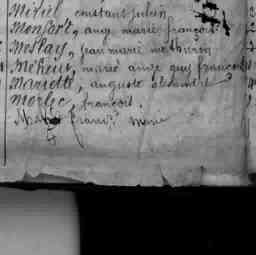 Mével constant julien
Monfort, ange marie françois
Morlay, jean marie mathurin
Méheut, marie ange guy françois
Marrette, auguste alexandre
Morlec, françois.
franç. marie